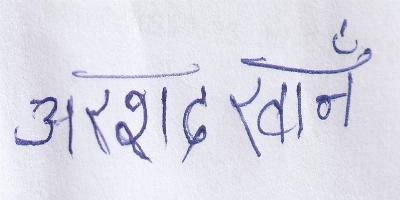 अरशद खानँ